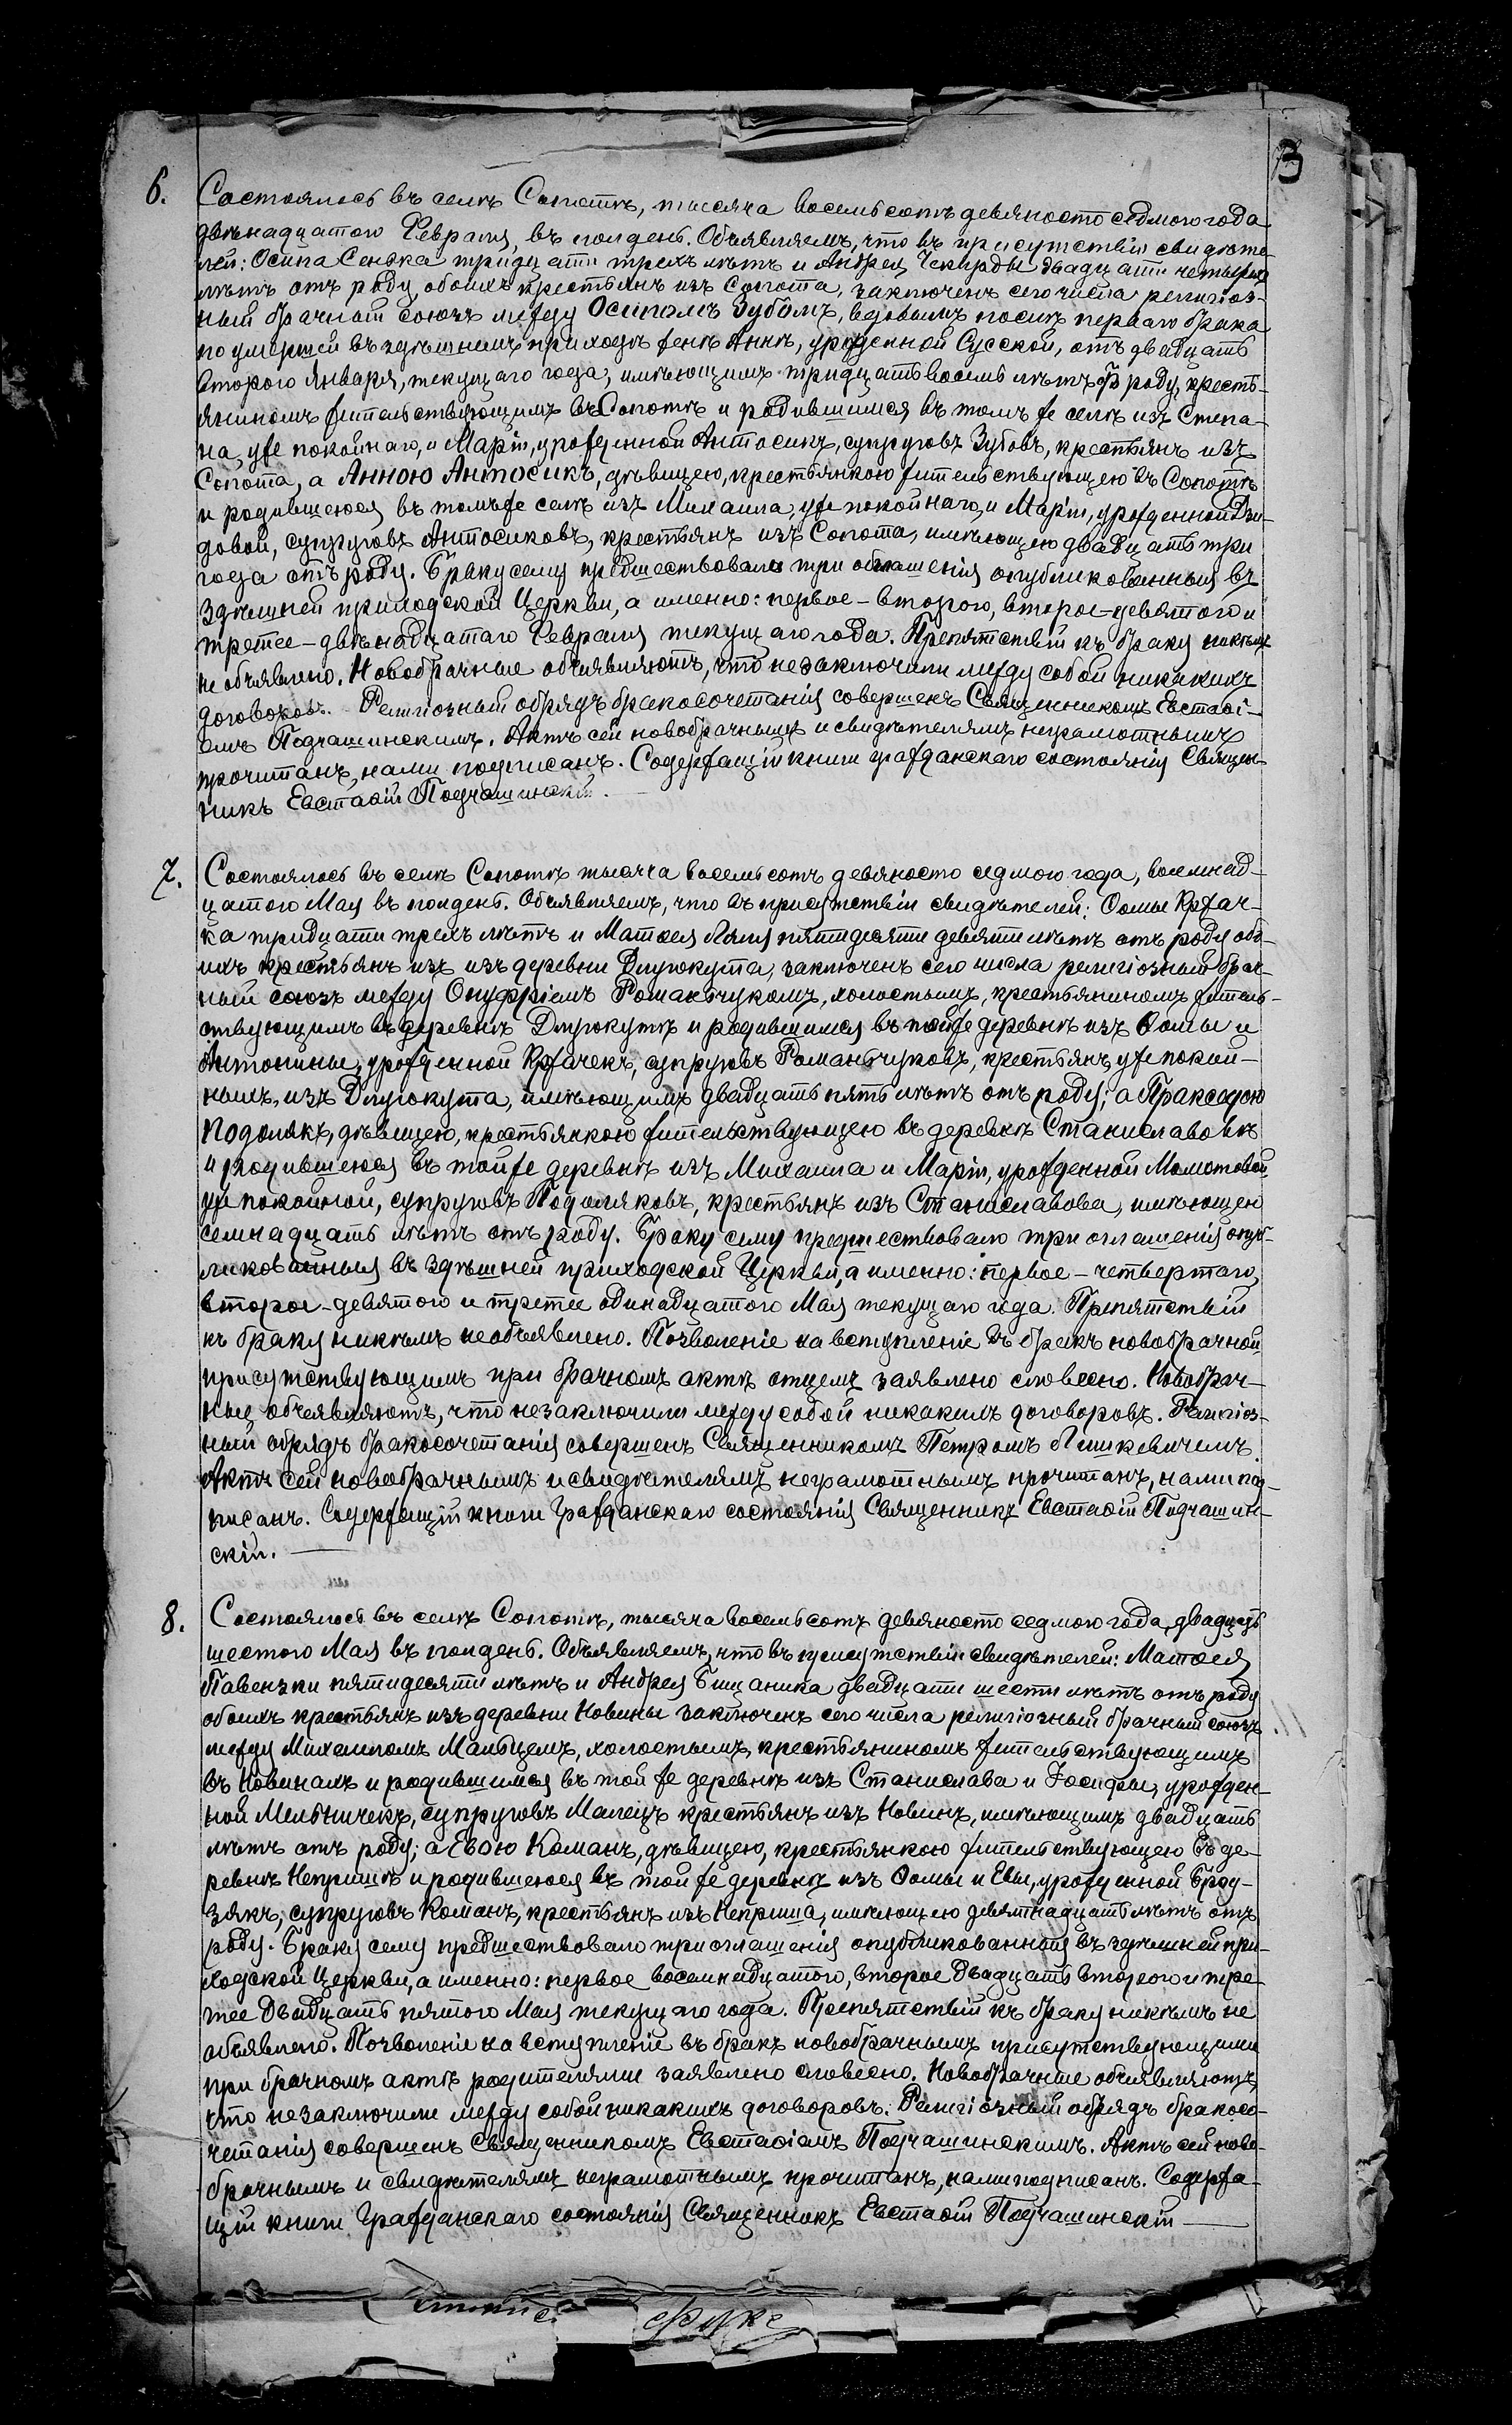 3
6. Состоялось въ селѣ Сопотѣ, тысяча восемьсотъ девяносто седмого года
двѣнадцатого Февраля, въ полдень. Объявляемъ, что въ присутствіи свидѣте-
лей: Осипа Сенька тридцати трехъ лѣтъ и Андрея Чекирды двадцати четырехъ
лѣтъ отъ роду, обоихъ крестьянъ изъ Сопота, заключенъ сего числа религіоз-
ный брачный союзъ между Осипомъ Зубомъ, вдовымъ послѣ перваго брака
по умершей въ здѣшнемъ приходѣ женѣ Аннѣ, урожденной Сусской, отъ двадцать
второго Января, текущаго года, имѣющимъ тридцать восемь лѣтъ отъ роду, кресть-
яниномъ жительствующимъ въ Сопотѣ и родившимся въ томъ же селѣ изъ Степа-
на, уже покойнаго, и Маріи, урожденной Антосикъ, супруговъ Зубовъ, крестьянъ изъ
Сопота, а Анною Антосикъ, дѣвицею, крестьянкою жительствующею въ Сопотѣ
и родившеюся въ томъ же селѣ изъ Михаила, уже покойнаго, и Маріи, урожденной Дзи-
довой, супруговъ Антосиковъ, крестьянъ изъ Сопота, имѣющею двадцать три
года отъ роду. Браку сему предшествовало три обглашенія опубликованныя въ
здѣшней приходской Церкви, а именно: первое – второго, второе – девятого и
третее – двѣнадцатаго Февраля текущаго года. Препятствій къ браку никѣмъ
не объявлено. Новобрачные объявляютъ, что незаключили между собой никакихъ
договоровъ. Религіозный обрядъ бракосочетанія совершенъ Священникомъ Евстаѳі-
емъ Подчашинскимъ. Актъ сей новобрачнымъ и свидѣтелямъ неграмотнымъ
прочитанъ, нами подписанъ. Содержащій книги гражданскаго состоянія Священ-
никъ Евстаѳій Подчашинскій.
7. Состоялось въ селѣ Сопотѣ тысяча восемьсотъ девяносто седмого года, восемнад-
цатого Мая въ полдень. Объявляемъ, что въ присутствіи свидѣтелей: Ѳомы Кржач-
ка тридцати трехъ лѣтъ и Матѳея Ляля пятидесяти девяти лѣтъ отъ роду обо-
ихъ крестьянъ изъ изъ деревни Длугокута, заключенъ сего числа религіозный брач-
ный союзъ между Онуфріемъ Романьчукомъ, холостымъ, крестьяниномъ житель-
ствующимъ въ деревнѣ Длугокутѣ и родившимся въ той же деревнѣ изъ Ѳомы и
Антонины, урожденной Кржачекъ, супруговъ Романьчуковъ, крестьянъ, уже покой-
ныхъ, изъ Длугокута, имѣющимъ двадцать пять лѣтъ отъ роду; а Праксидою
Подолякъ, дѣвицею, крестьянкою жительствующею въ деревнѣ Станиславовѣ
и родившеюся въ той же деревнѣ изъ Михаила и Маріи, урожденной Момотовой,
уже покойной, супруговъ Подоляковъ, крестьянъ изъ Станиславова, имѣющею
семнадцать лѣтъ отъ роду. Браку сему предшествовало три оглашенія опуб-
ликованныя въ здѣшней приходской Церкви, а именно: первое – четвертаго,
второе – девятого и третее одинадцатого Мая текущаго года. Препятствій
къ браку никѣмъ необъявлено. Позволеніе на вступленіе въ бракъ новобрачной
присутствующимъ при брачномъ актѣ отцемъ заявлено словесно. Новобрач-
ныя объявляютъ, что незаключили между собой никакихъ договоровъ. Религіоз-
ный обрядъ бракосочетанія совершенъ Священникомъ Петромъ Лишкевичемъ.
Актъ сей новобрачнымъ и свидѣтелямъ неграмотнымъ прочитанъ, нами под-
писанъ. Содержащій книги Гражданскаго состоянія Священникъ Евстаѳій Подчашин-
скій.
8. Состоялось въ селѣ Сопотѣ, тысяча восемьсотъ девяносто седмого года, двадцать
шестого Мая въ полдень. Объявляемъ, что въ присутствіи свидѣтелей: Матѳея
Павензки пятидесяти лѣтъ и Андрея Бищаника двадцати шести лѣтъ отъ роду
обоихъ крестьянъ изъ деревни Новины заключенъ сего числа религіозный брачный союзъ
между Михаиломъ Мальцемъ, холостымъ, крестьяниномъ жительствующимъ
въ Новинахъ и родившимся въ той же деревнѣ изъ Станислава и Іосифы, урожден-
ной Мельничекъ, супруговъ Малецъ крестьянъ изъ Новинъ, имѣющимъ двадцать
лѣтъ отъ роду; а Евою Команъ, дѣвицею, крестьянкою жительствующею въ де-
ревнѣ Непришѣ и родившеюся въ той же деревнѣ изъ Ѳомы и Евы, урожденной Броду-
зякъ, супруговъ Команъ, крестьянъ изъ Неприша, имѣющею девятнадцать лѣтъ отъ
роду. Браку сему предшествовало три оглашенія опубликованныя въ здѣшней при-
ходской Церкви, а именно: первое восемнадцатого, второе двадцать второго и тре-
тее двадцать пятого Мая текущаго года. Препятствій къ браку никѣмъ не
объявлено. Позволеніе на вступленіе въ бракъ новобрачнымъ присутствующими
при брачномъ актѣ родителями заявлено словесно. Новобрачные объявляютъ,
что незаключили между собой никакихъ договоровъ. Религіозный обрядъ бракосо-
четанія совершенъ Священникомъ Евстаѳіемъ Подчашинскимъ. Актъ сей ново-
брачнымъ и свидѣтелямъ неграмотнымъ прочитанъ, нами подписанъ. Содержа-
щій книги Гражданскаго состоянія Священникъ Евстаѳій Подчашинскій